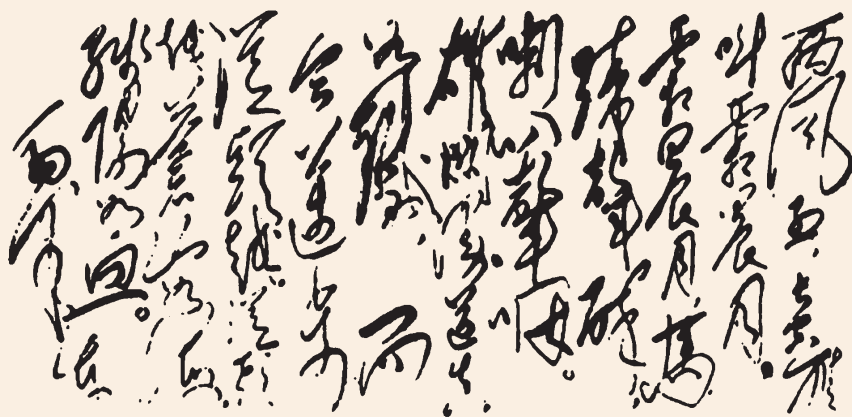 西风烈,長空雁
叫霜晨月。
霜晨月,馬
蹄聲碎
喇叭聲咽。
雄關漫道真
如鐵,而
今邁步
從頭越從頭
越,蒼山如海,
殘陽如血。